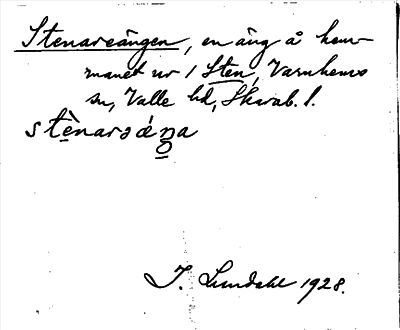 Stenareängen, en äng å hem-
manet nr 1 Sten, Varnhems
sn, Valle hd, Skarab. l.
stènarəǽŋa
I. Lundahl 1928.